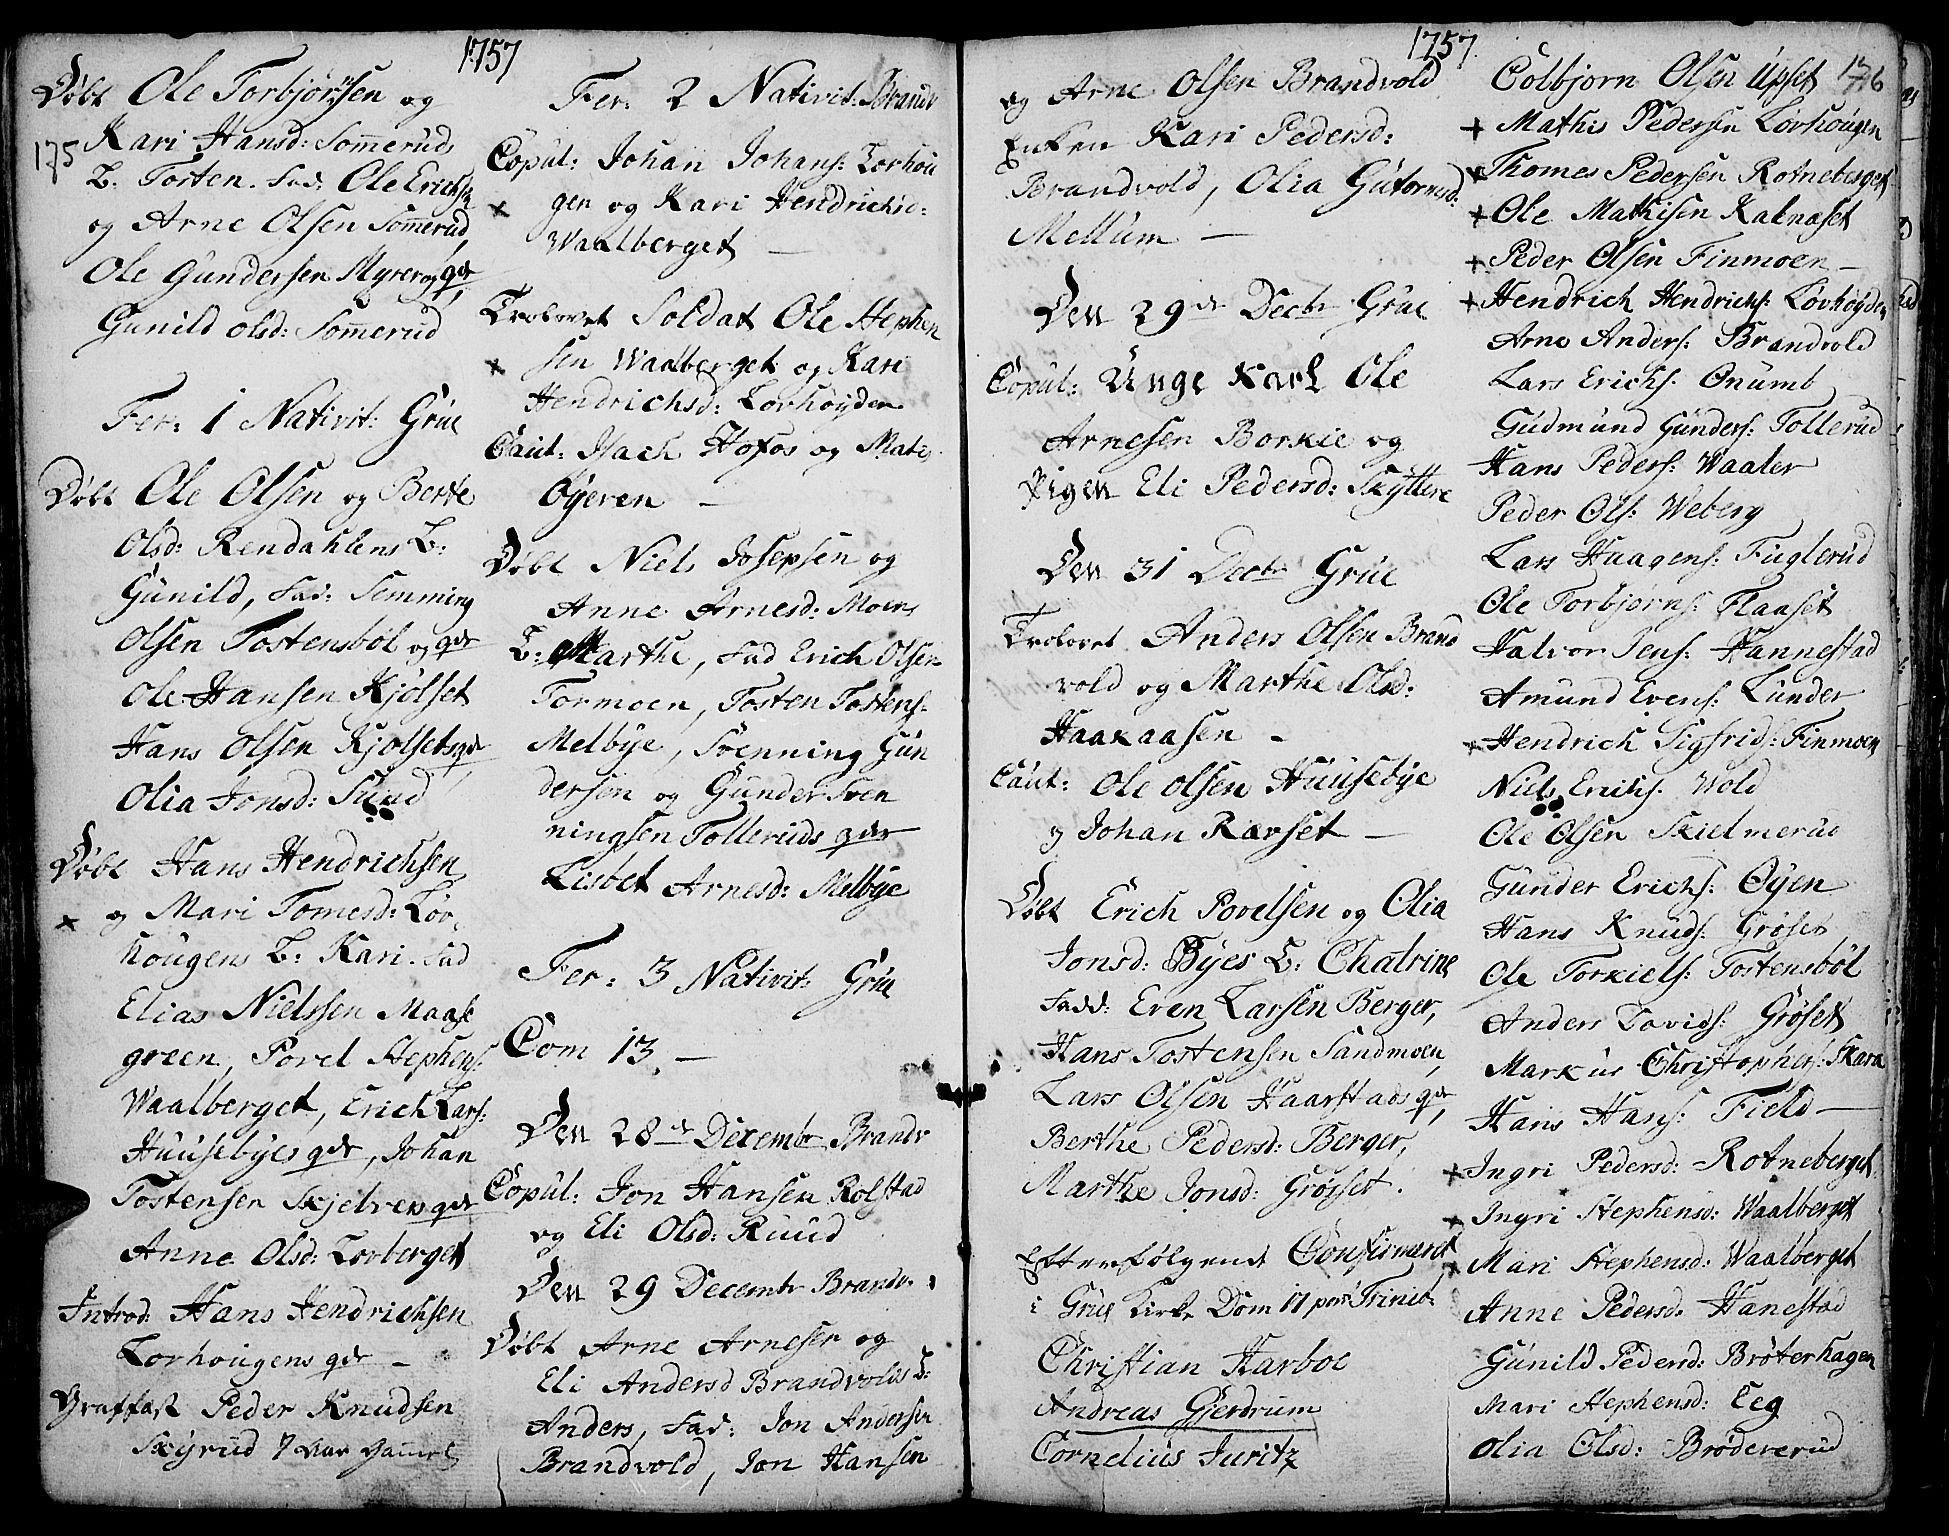 1757
Døbt Ole Torbjørnsen og
175 Kari Hansd: Somerud
B: Tosten. Fad: Ole Erichsen
og Arne Olsen Somerud,
Ole Gundersen Myrer og qdr
Gunild olsd: Somerud
Fer: 1 Nativit: Grue
Døbt Ole Olsen og Berte
Olsd: Rendahlens B:
Gunild, Fad: Semming
Olsen Tostensbøl og qdr
Ole Hansen Kjølset
Hans Olsen Kjolsets qdr
Olia Jonsd: Sund
Døbt Hans Hendrichsen
× og Mari Tomesd: Løv
hougens B: Kari. Fad
Elias Nielssen Maase
green, Povel Stephens:
Waalberget, Erich Lars:
Huusebyes qdr, Johan
Tostensen Skjelver qdr
Anne Olsd: Lovberget
Introd: Hans Hendrichsen
Lovhougens qdr –
Graffæst Peder Knudsen
Skyrud 7 Aar Gamel
Fer: 2 Nativit: Brandv
Copul: Johan Johans: Lovhou
× gen og Kari Hendrichsd:
Waalberget –
Trolovet Soldat Ole Stephen
× sen Waalberget og Kari
Hendrichsd: Lovhøyden
Caut: Isach Hofos og Matis
Øyeren –
Døbt Niels Josepsen og
Anne Arnesd: Moens
B: Marthe, Fad Erich Olsen
Tormoen, Tosten Tostens:
Melbye, Svenning Gun
dersen og Gunder Sven
ningsen Tolleruds qdr
Lisbet Arnesd: Melbye
Fer: 3 Nativit: Grue
Com 13. –
Den 28de Decembr Brandv
Copul: Jon Hansen Rolstad
og Eli Olsd: Ruud
Den 29 Decembr Brandv:
Døbt Arne Arnesen og
Eli Andersd Brandvolds B:
Anders, Fad: Jon Andersen
Brandvold, Jon Hansen
1757
og Arne Olsen Brandvold
Enken Kari Pedersd:
Brandvold, Olia Gutormsd:
Mellum –
Den 29de Decbr Grue
Copul: Unge Karl Ole
Arnesen Borkie og
Pigen Eli Pedersd: Skyttere
Den 31 Decbr Grue
Trolovet Anders Olsen Brand
vold og Marthe Olsd:
Haakaasen –
Caut: Ole Olsen Huusebye
og Johan Ravset –
Døbt Erich Povelsen og Olia
Jonsd: Byes B: Chatrine
Fadd: Even Larsen Berger,
Hans Tostensen Sandmoen,
Lars Olsen Haarstads qdr,
Berthe Pedersd: Berger,
Marthe Jonsd: Grøsset.
Efterfølgende Confirmeret
i Grue Kirke Dom 11 post Trinit:
Christian Harboe
Andreas Gjerdrum
Cornelius Juritz
176
Colbjørn Olsen Upset
+ Mathis Pedersen Lovhougen
+ Thomes Pedersen Rotneberget
+ Ole Mathisen Kalnæset
+ Peder Olsen Finmoen –
+ Hendrich Hendrichs: Løvhøyden
Arne Anders: Brandvold
Lars Erichs: Onumb
Gudmund Gunders: Tollerud
Hans Peders: Waaler
Peder Ols: Weberg
Lars Haagens: Fuglerud
Ole Torbjørns: Flaaset
Halvor Jens: Hannestad
Amund Evens: Lunder
+ Hendrich Sigfrids: Finmoen
Niels Erichs. Wold
Ole Olsen Skielmerud
Gunder Erichs: Øyen
Hans Knuds: Grøset
Ole Torkiels: Tostensbøl
Anders Davids: Grøset
Markus Christophers: Skara
Hans Hans: Field –
+ Ingri Pedersd: Rotneberget
+ Ingri Stephensd: Waalberget
+ Mari Stephensd: Waalberget
Anne Pedersd: Hanestad
Gunild Pedersd: Brøterhagen
Mari Stephensd: Eeg
Olia Olsd: Brødererud